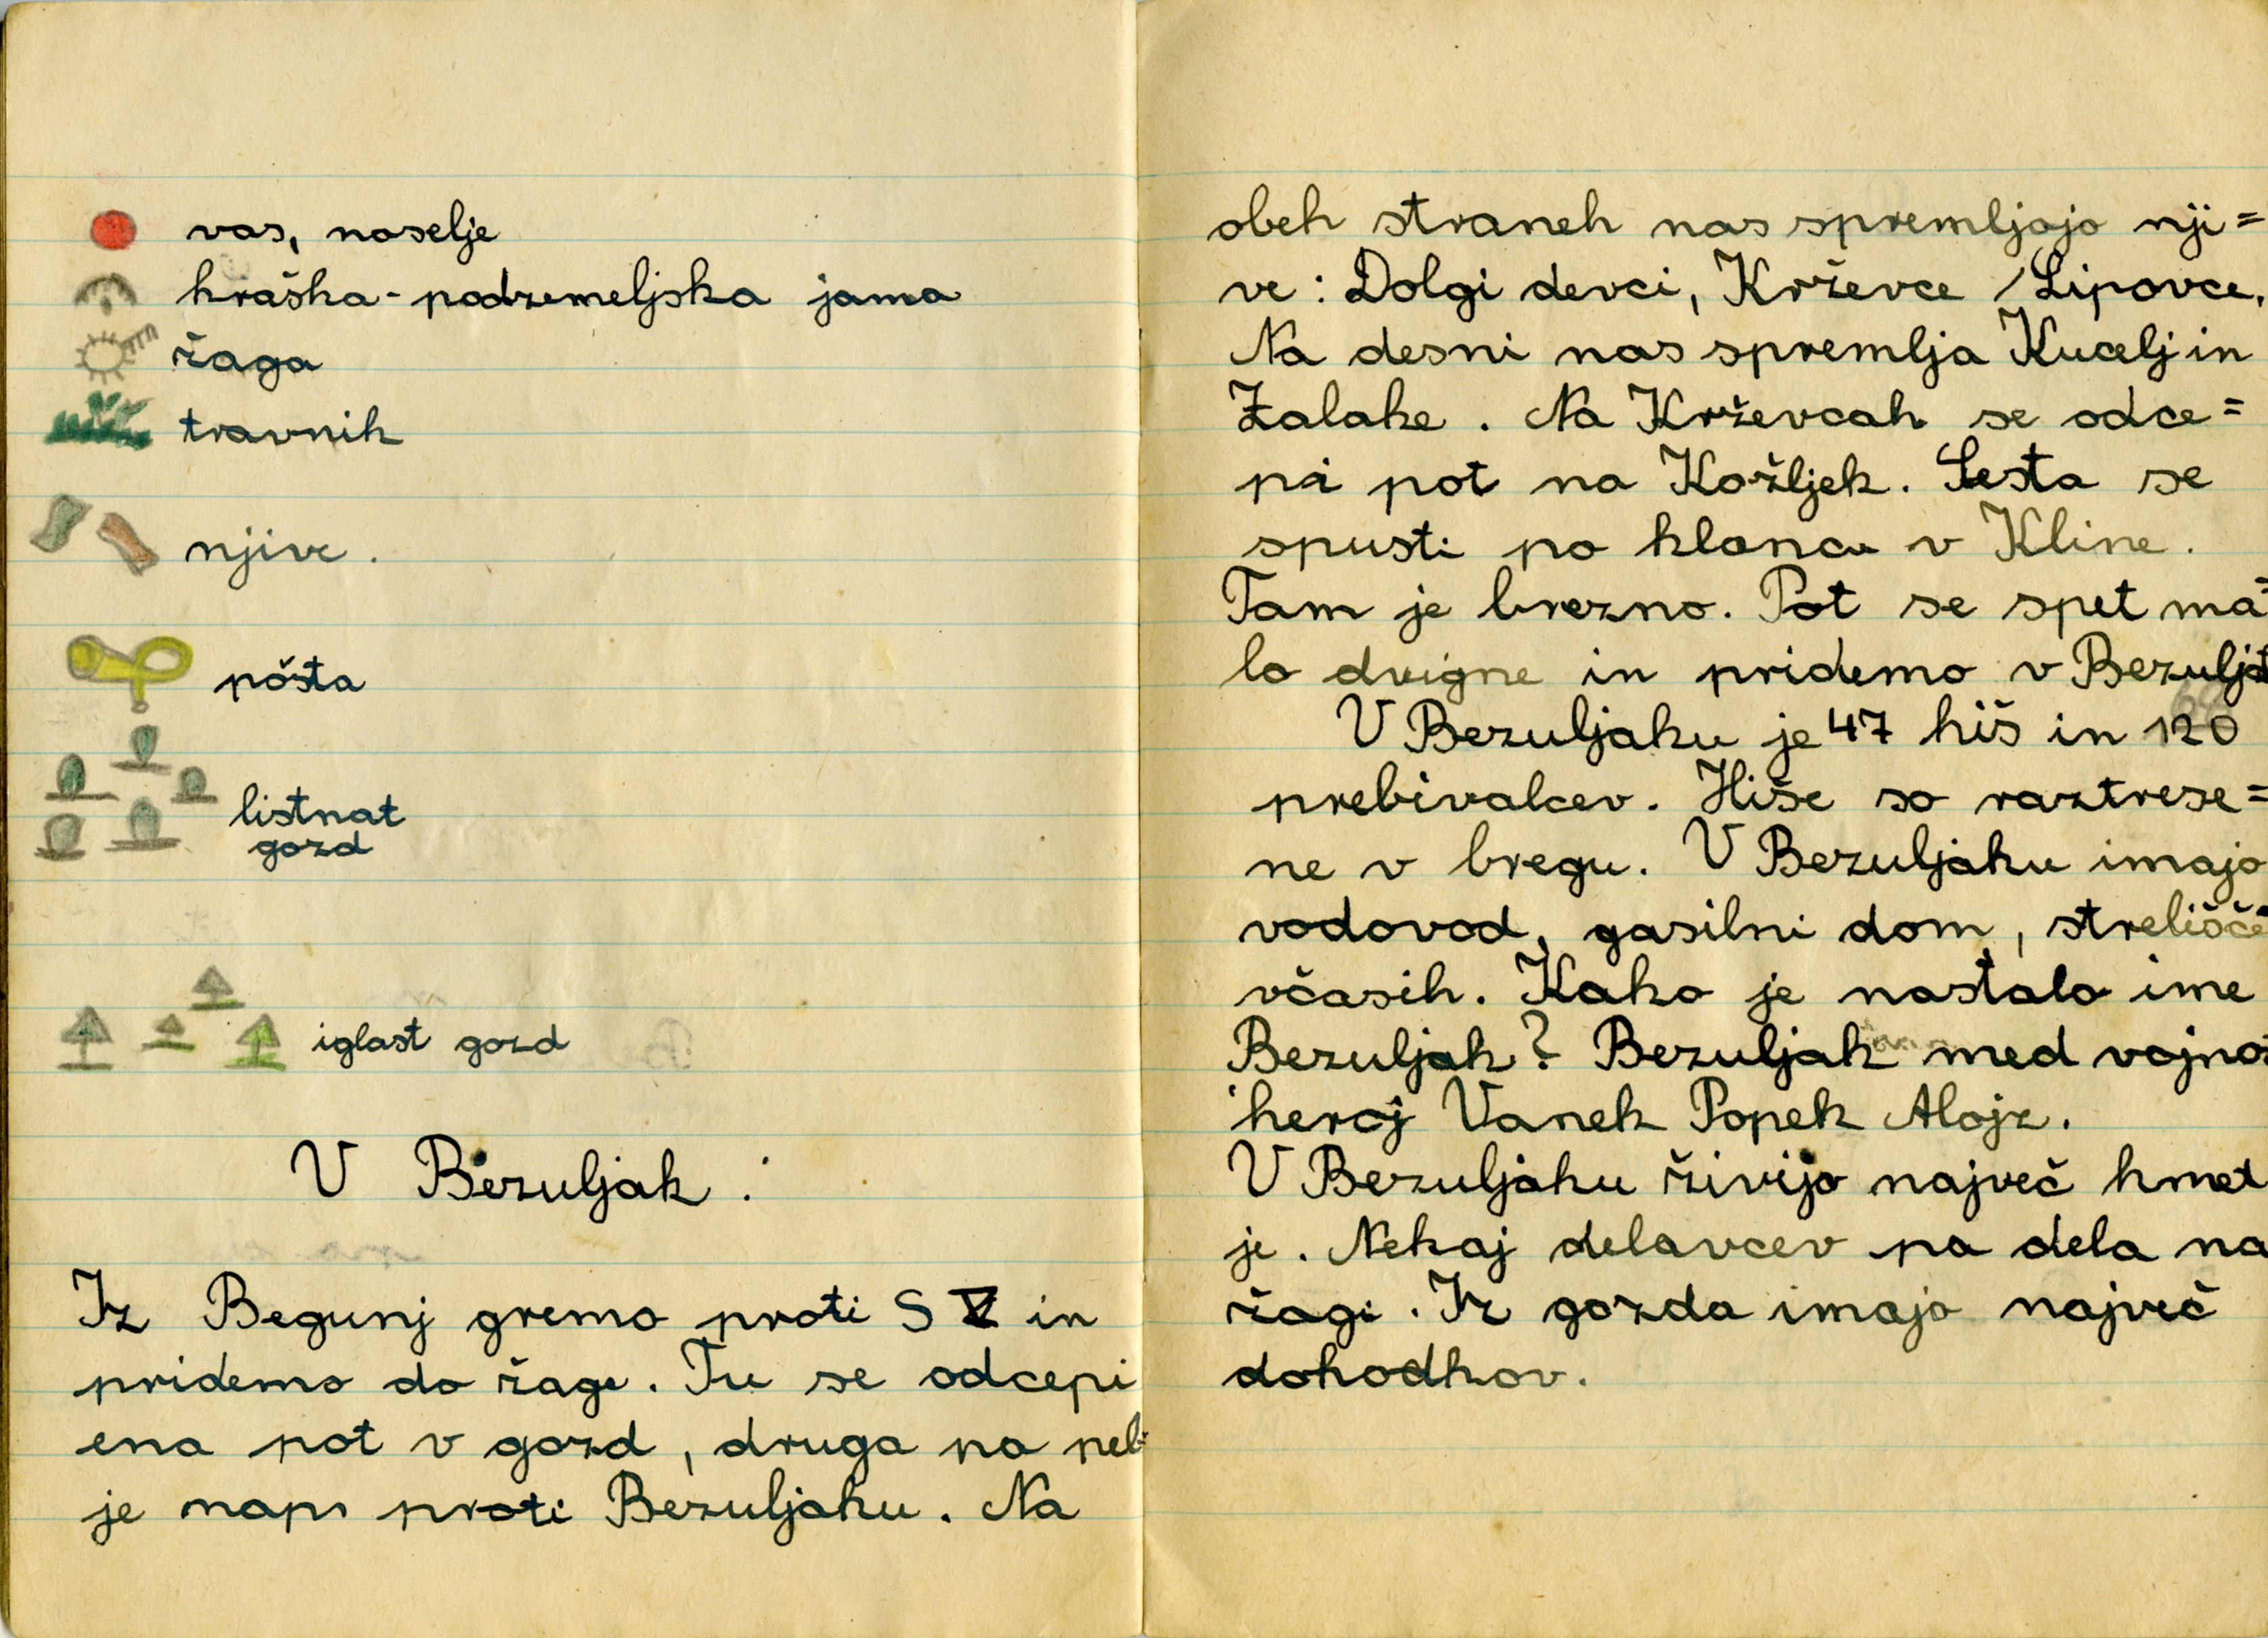 vas, naselje
kraška-podzemeljska jama
žaga
travnik
njive.
pošta
listnat
gozd
iglast gozd
V Bezuljak:
Iz Begunj gremo proti SV in
pridemo do žage. Tu se odcepi
ena pot v gozd, druga pa pel=
je naprej proti Bezuljaku. Na
obeh straneh nas spremljajo nji=
ve: Dolgi devci, Krževce, Lipovce.
Na desni nas spremlja Kucelj in
Zalake. Na Krževcah se odce=
pi pot na Kožljek. Cesta se
spusti po klancu v Kline.
Tam je brezno. Pot se spet ma=
lo dvigne in pridemo v Bezuljak
V Bezuljaku je 47 hiš in 120
prebivalcev. Hiše so raztrese=
ne v bregu. V Bezuljaku imajo
vodovod, gasilni dom, strelišče
včasih. Kako je nastalo ime
Bezuljak? Bezuljak med vojno:
heroj Vanek Popek Alojz.
V Bezuljaku živijo največ kmet
je. Nekaj delavcev pa dela na
žagi. Iz gozda imajo največ
dohodkov.